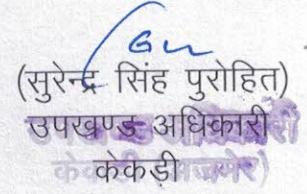 (सुरेन्द्र सिंह पुरोहित)
उपखण्ड अधिकारी
केकड़ी